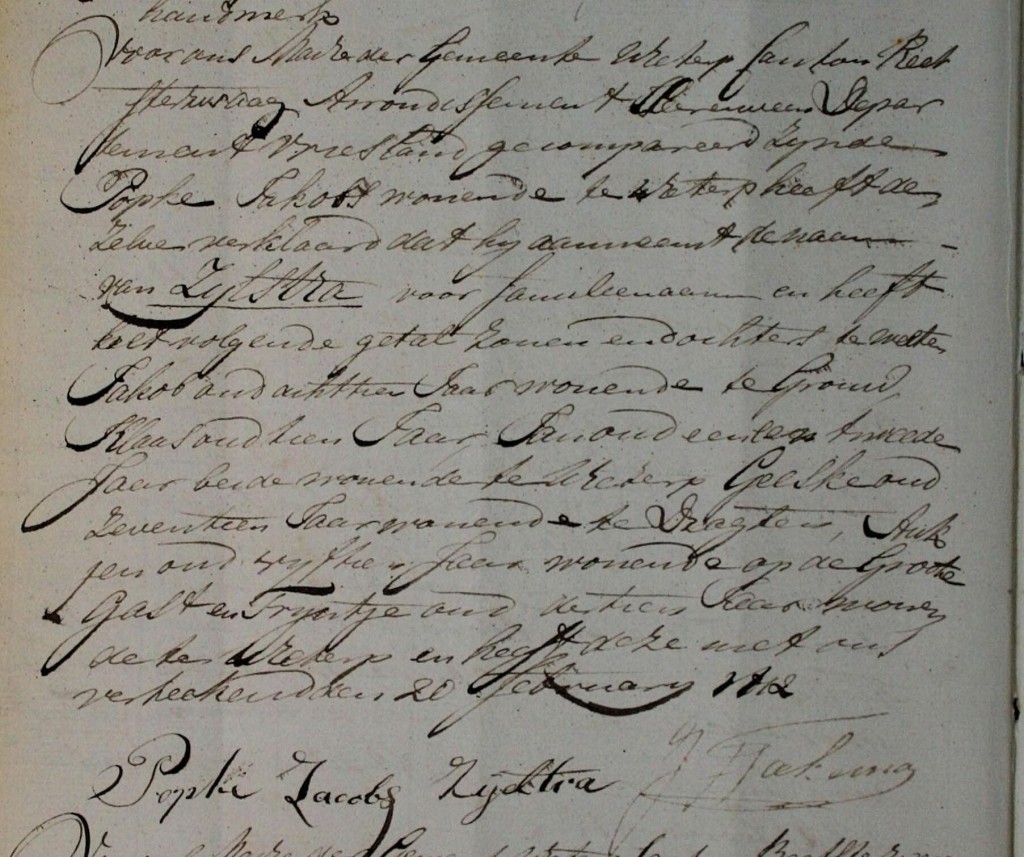 handmerk
Voor ons Maire der Gemeente Ureterp Canton Beet
sterzwaag Arrondissement Heerenveen Depar
tement Vriesland gecompareerd zynde
Popke Jakobs wonende te Ureterp heeft de
zelve verklaard dat hy aanneemt de naam
van Zylstra voor familienaam en heeft
het volgende getal zonen en dochters te weten
Jakob oud achttien Jaar wonende te Grouw
Klaas oud tien Jaar, Jan oud een en tweede
Jaar beide wonende te Ureterp Geeske oud
zeventien Jaar wonende te Dragten, Auk
jen oud vyftien Jaar wonende op de Groote
Gast en Tryntje oud dertien Jaar wonen
de te Ureterp en heeft deze met ons
verteekend den 20 February 1812
Popke Jacobs Zijlstra
Voor ons Maire der Gemeente Ureterp